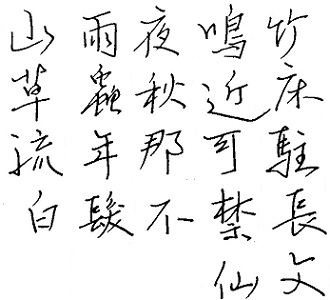 山雨夜鳴竹
草蟲秋近床
流年那可駐
白髮不禁長
仙文